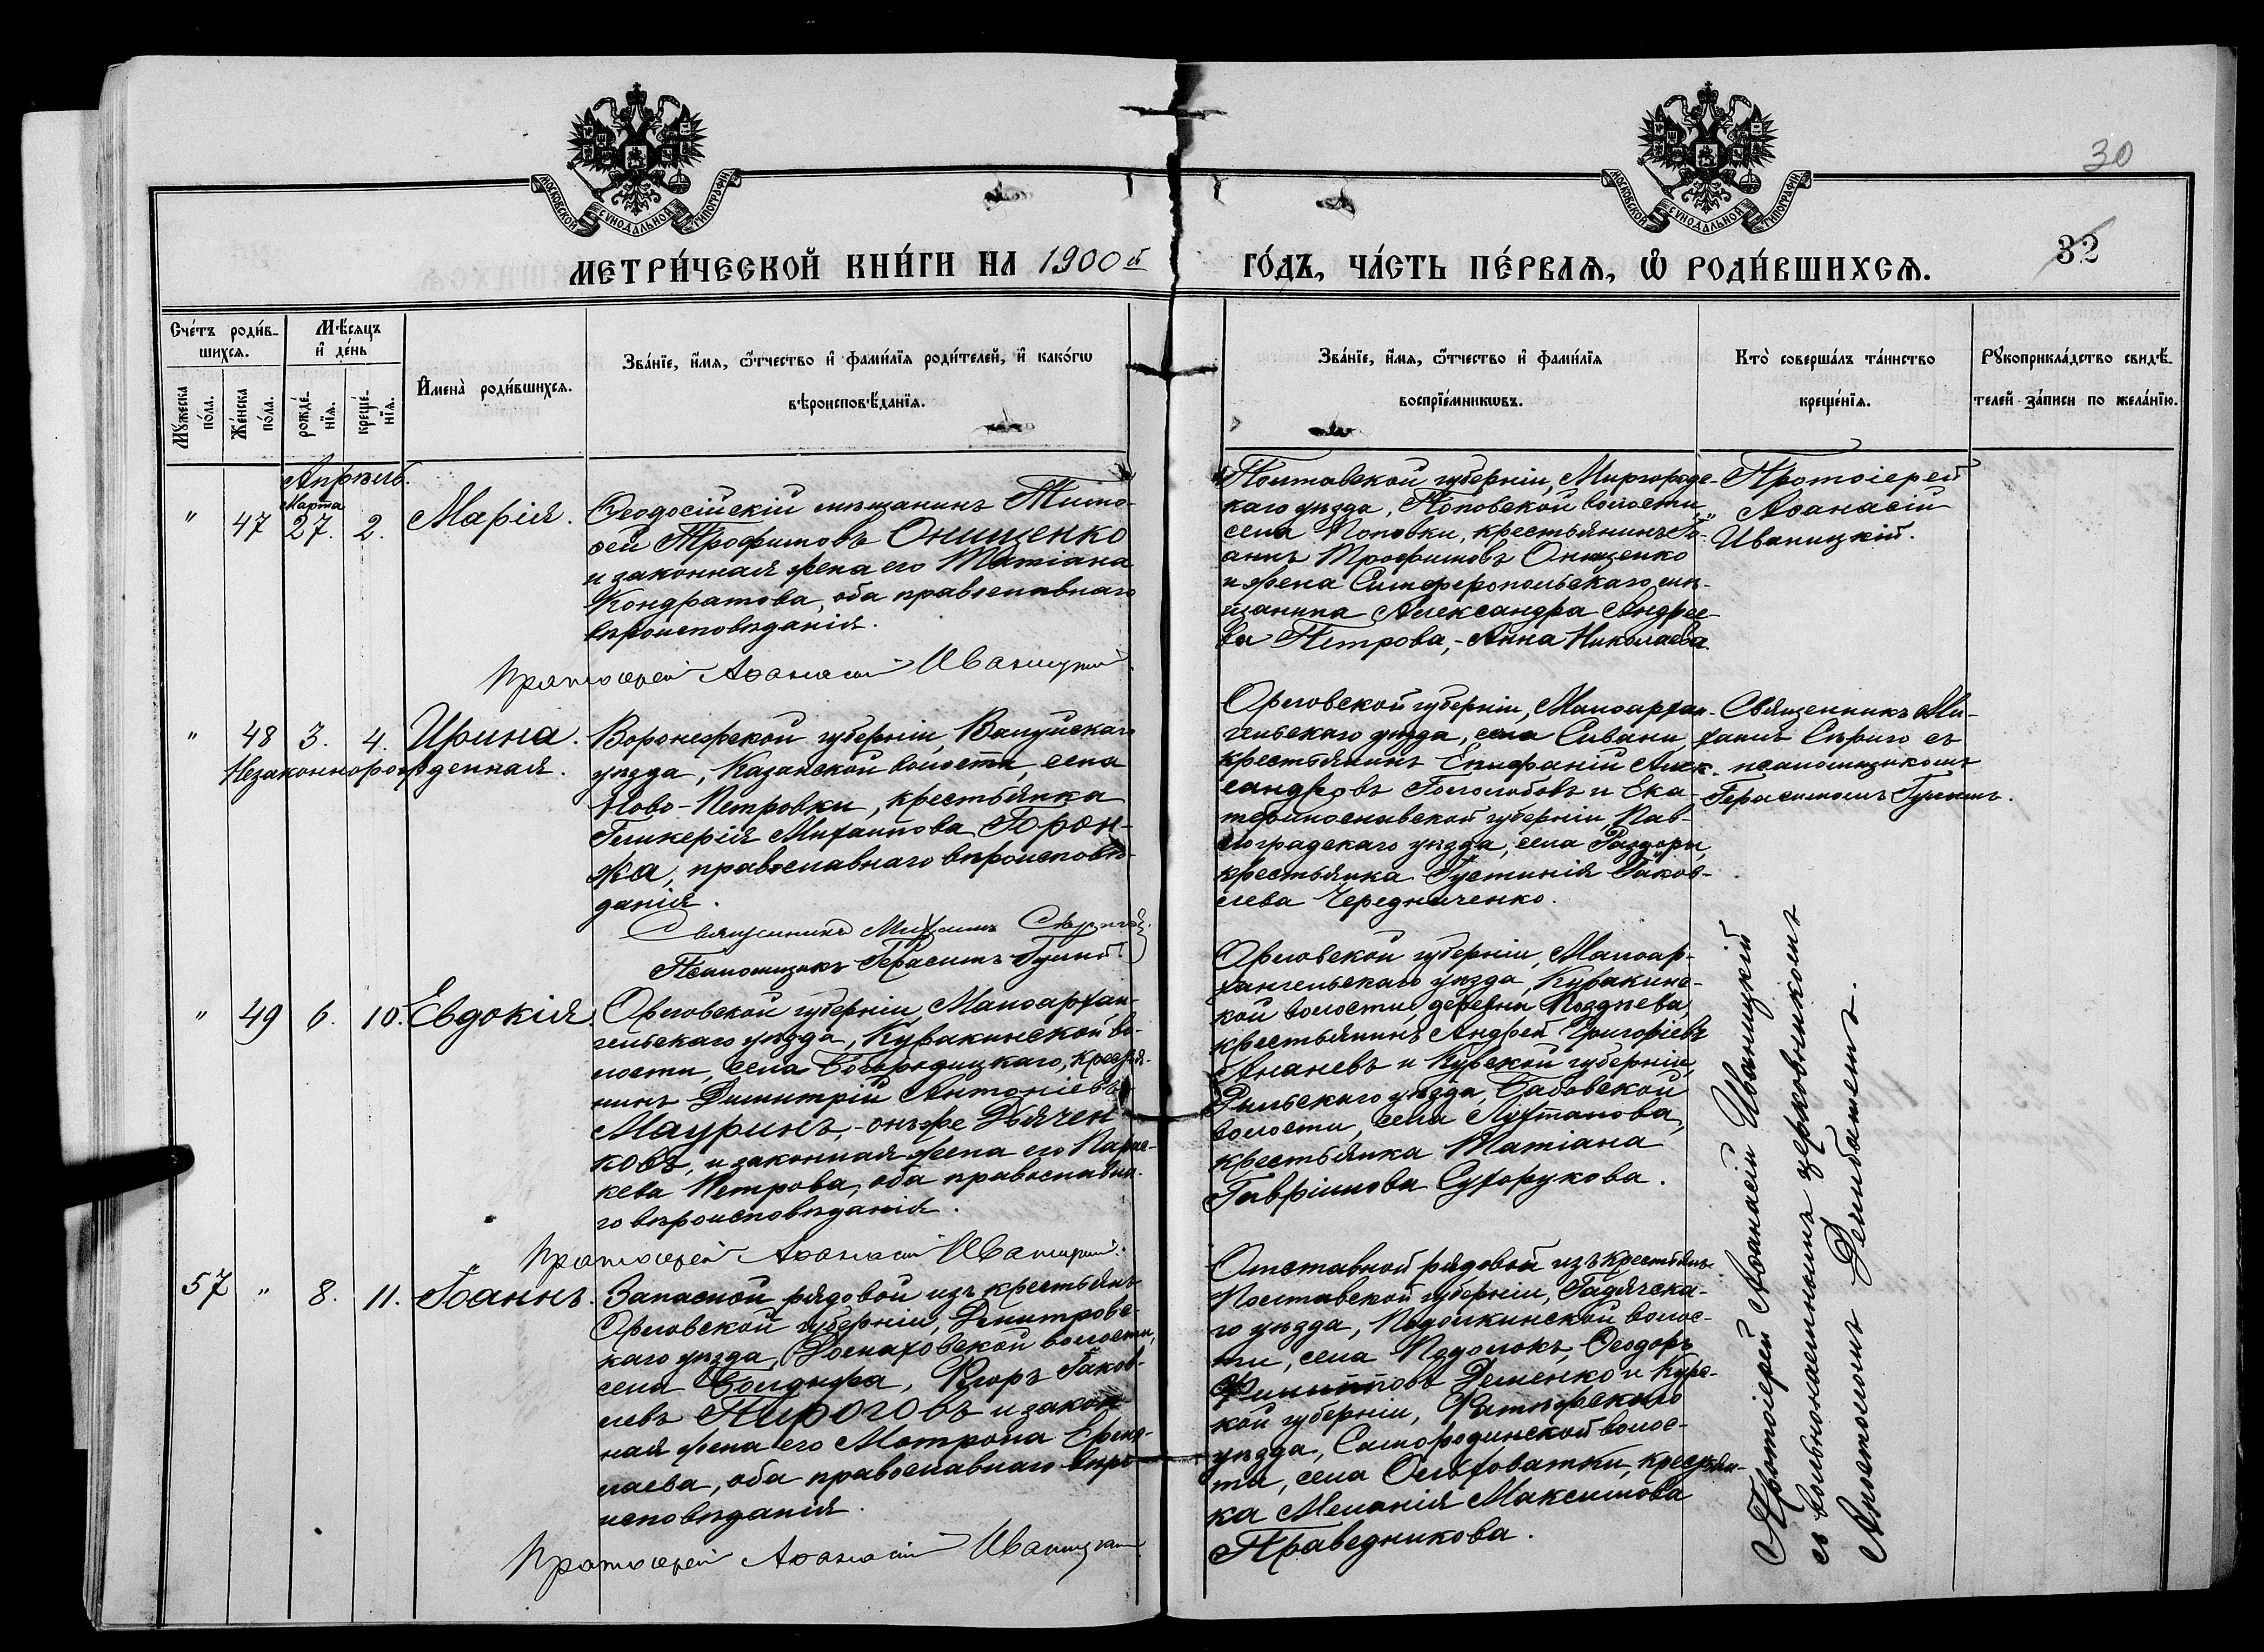 30
МОСКОВСКОЙ СѴНОДАЛЬНОЙ ТИПОГРАФІИ
МОСКОВСКОЙ СѴНОДАЛЬНОЙ ТИПОГРАФІИ
32
МЕТРИ́ЧЕСКОЙ КНИ́ГИ НА 1900й ГО́ДЪ, ЧА́СТЬ ПЕ́РВАѦ, Ѽ РОДИ́ВШИХСѦ.
Сче́тъ роди́в-
шихсѧ.
Мѣ́сяцъ
и҆ де́нь
Мꙋ́жеска
по́ла.
Же́нска
по́ла.
рожде́-
нїѧ.
креще́-
нїѧ.
И҆мена̀ роди́вшихсѧ.
Зва́нїе, и҆́мѧ, ѻ҆́тчество и҆ фами́лїѧ роди́телей, и҆ како́гѡ
вѣроисповѣ́данїѧ.
Зва́нїе, и҆́мѧ, ѻ҆́тчество и҆ фами́лїѧ
воспрїе́мникѡвъ.
Кто̀ соверша́лъ та́инство
креще́нїѧ.
Рꙋкоприкла́дство свидѣ́-
телей за́писи по жела́нїю.
Апрѣль.
"
47
Марта
27.
2.
Марія.
Ѳеодосійскій мѣщанинъ Тимо-
ѳей Трофимовъ Онищенко
и законная жена его Татіана
Кондратова, оба православнаго
вѣроисповѣданія.
Протоіерей Аѳанасій Иваницкій.
Полтавской губерніи, Миргородс-
каго уѣзда, Поповской волости,
села Поповки, крестьянинъ Іо-
аннъ Трофимовъ Онищенко
и жена Симферопольскаго мѣ-
щанина Александра Андрее-
ва Петрова,- Анна Николаева.
Протоіерей
Аѳанасій
Иваницкій.
"
48
3.
4.
Ирина.
Незаконнорожденная.
Воронежской губерніи, Валуйскаго
уѣзда, Казанской волости, села
Ново-Петровки, крестьянка
Гликерія Михайлова Горон-
жа, православнаго вѣроисповѣ-
данія.
Священникъ Михаилъ Сѣриго
Псаломщикъ Герасимъ
Орловской губерніи, Малоархан-
гельскаго уѣзда, села
крестьянинъ Епифаній Алек-
сандровъ Гололобовъ и Ека-
теринославской губерніи, Пав-
лоградскаго уѣзда, села Раздоры,
крестьянка Іустинія Іаков-
лева Чередниченко.
Священникъ Ми-
хаилъ Сѣриго съ
псаломщикомъ
Герасимомъ
"
49
6.
10.
Евдокія.
Орловской губерніи, Малоархан-
гельскаго уѣзда, Куракинской во-
лости, села Богородицкаго, крестья-
нинъ Димитрій Антоніевъ
Мауринъ,- онъ же Дьячен-
ковъ, и законная жена его Парас-
кева Петрова, оба православна-
го вѣроисповѣданія.
Протоіерей Аѳанасій Иваницкій.
Орловской губерніи, Малоар-
хангельскаго уѣзда, Куракинс-
кой волости, деревни Позднева,
крестьянинъ Андрей Григоріевъ
Ананевъ и Курской губерніи,
Рыльскаго уѣзда,
волости, села
крестьянка Татіана
Гавріилова Сухорукова.
57
"
8.
11.
Іоаннъ.
Запасной рядовой изъ крестьянъ
Орловской губерніи, Дмитровс-
каго уѣзда, Домаховской волости,
села Болдыжа, Егоръ Іаков-
левъ Пироговъ и закон-
ная жена его Матрона Ермо-
лаева, оба православнаго вѣро-
исповѣданія.
Протоіерей Аѳанасій Иваницкій
Отставной рядовой изъ крестьянъ
Полтавской губерніи, Гадячска-
го уѣзда, волос-
ти, села Ѳеодоръ
Филипповъ Деменко и Курс-
кой губерніи, Фатежскаго
уѣзда, Самородинской волос-
ти, села Ольховатки, крестьян-
ка Меланія Максимова
Праведникова.
Протоіерей Аѳанасій Иваницкій
съ вольнонаемнымъ церковникомъ
Апостоломъ